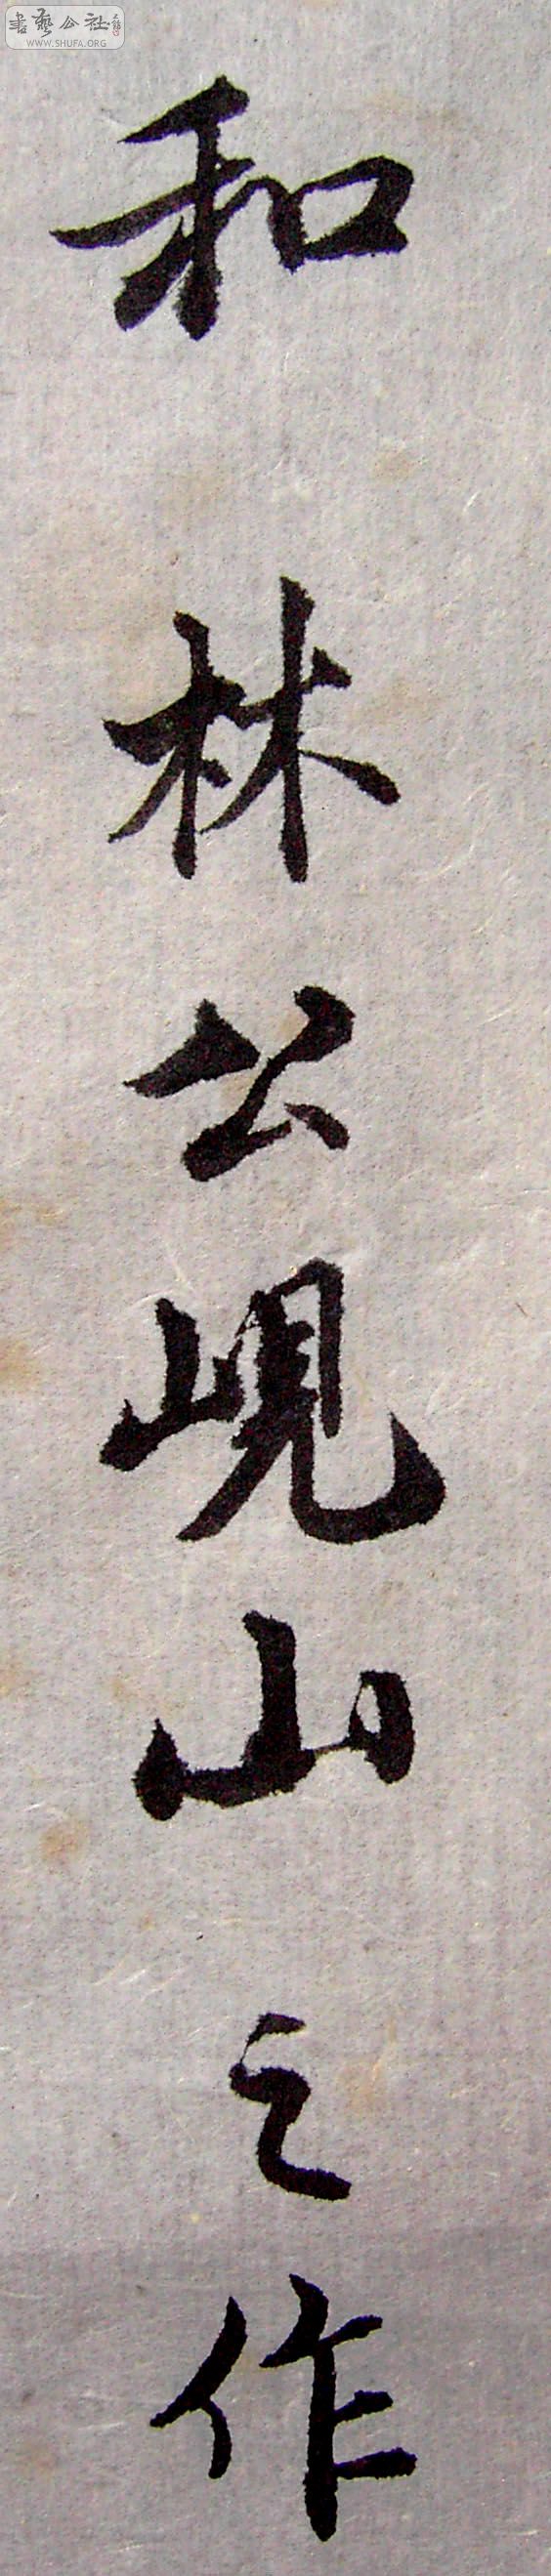 書藝公社
WWW.SHUFA.ORG
和林公峴山之作